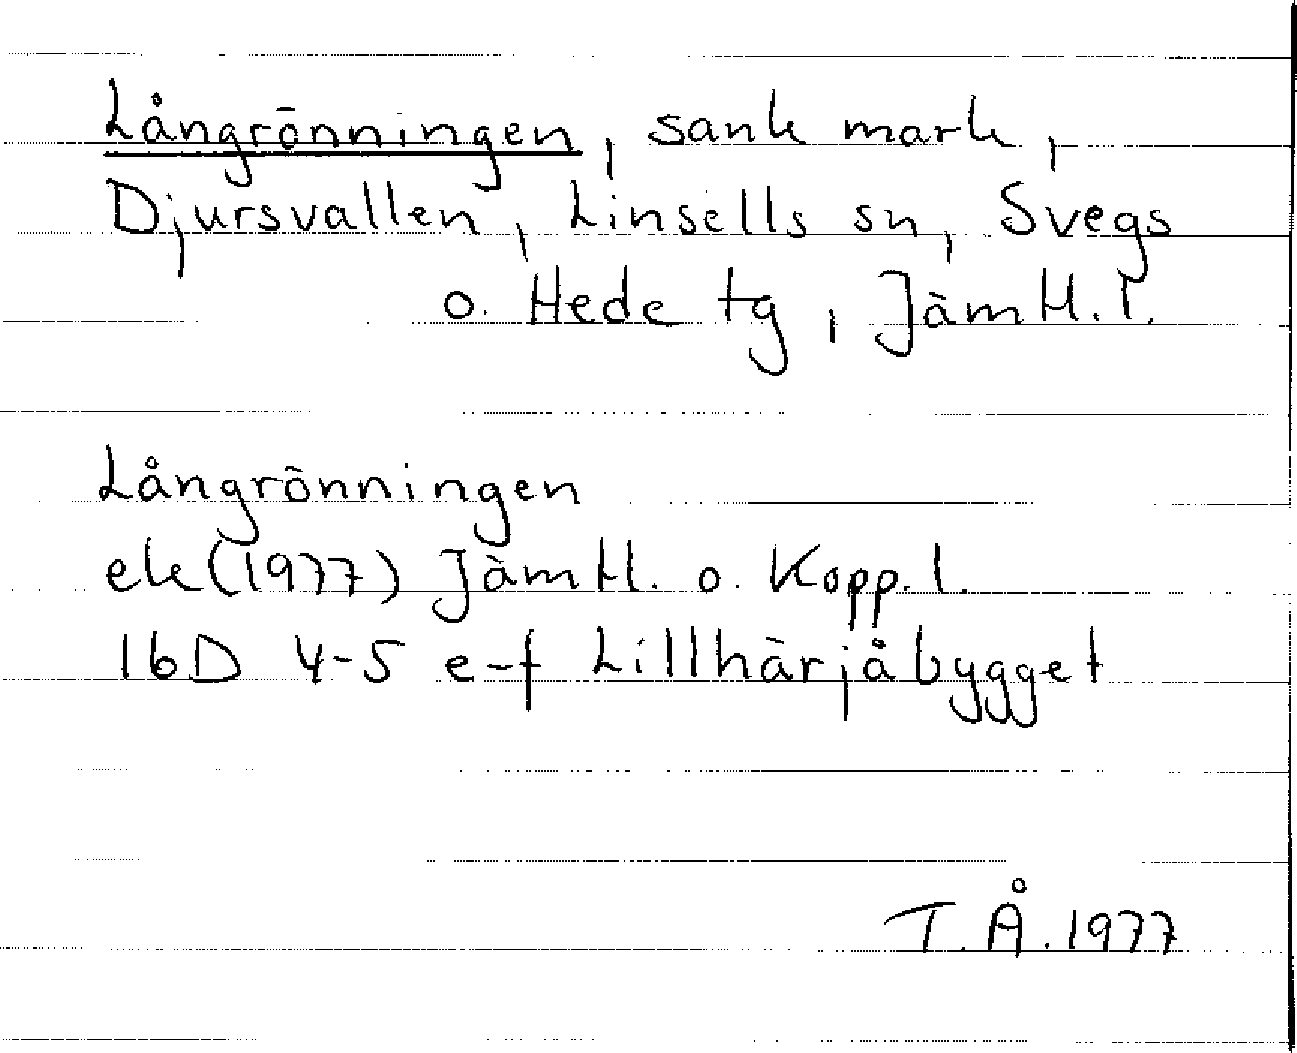 Långrönningen, sank mark,
Djursvallen, Linsells sn, Svegs
o. Hede tg, Jämtl. l.
Långrönningen
ek (1977) Jämtl. o. Kopp. l.
16D 4-5 e-f Lillhärjåbygget
T.Å. 1977